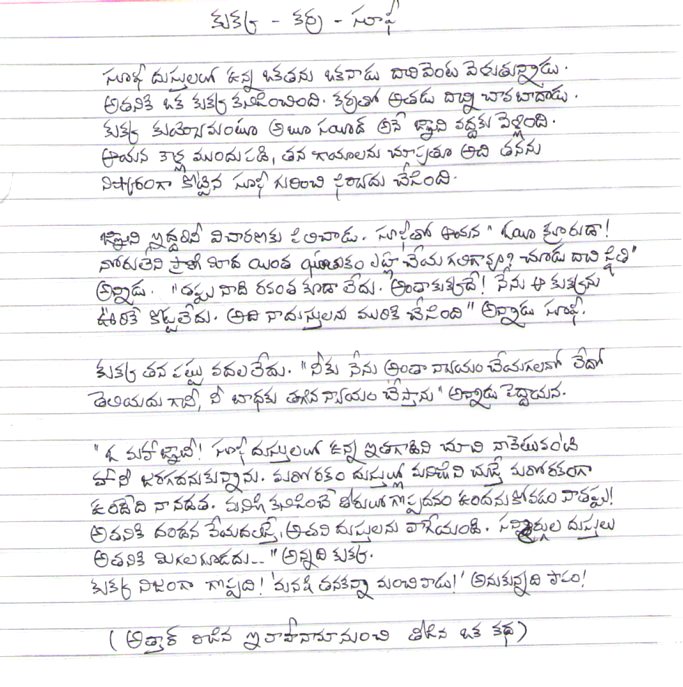 కుక్క - కర్ర - సూఫీ
సూఫీ దుస్తులలో ఉన్న ఒకతను ఒకనాడు దారివెంట వెళుతున్నాడు.
అతనికి ఒక కుక్క కనిపించింది. కర్రతో అతడు దాన్ని చావబాదాడు.
కుక్క కుయ్యోమంటూ అబూ సయీద్ అనే జ్ఞాని వద్దకు వెళ్లింది.
ఆయన కాళ్ల ముందు పడి, తన గాయాలను చూపుతూ అది తనను
నిష్కారణంగా కొట్టిన సూఫీ గురించి ఫిర్యాదు చేసింది.
జ్ఞాని ఇద్దరినీ విచారణకు పిలిచాడు. సూఫీతో ఆయన "ఓయీ క్రూరుడా!
నోరులేని ప్రాణి మీద యింత ఘాతుకం ఎట్లా చేయ గలిగావు? చూడు దాని స్థితి"
అన్నాడు. "తప్పు నాది రవంత కూడా లేదు. అంతా కుక్కదే! నేను ఆ కుక్కను
ఊరికే కొట్టలేదు. అది నా దుస్తులను మురికి చేసింది" అన్నాడు సూఫీ.
కుక్క తన పట్టు వదలలేదు. "నీకు నేను అంతా న్యాయం చేయగలనో లేదో
తెలియదు గానీ, నీ బాధకు తగిన న్యాయం చేస్తాను" అన్నాడు పెద్దాయన.
"ఓ మహాజ్ఞానీ! సూఫీ దుస్తులలో ఉన్న ఇతగాడిని చూచి నాకెటువంటి
హానీ జరగదనుకున్నాను. మరో రకం దుస్తుల్లో మనిషిని చూస్తే మరో రకంగా
ఉండేది నా నడత. మనిషి కనిపించే తీరులో గొప్పదనం ఉందనుకోవడం నా తప్పు!
అతనికి దండన వేయదలిస్తే, అతని దుస్తులను లాగేయండి. సన్మార్గుల దుస్తులు
అతనికి మిగలకూడదు..." అన్నది కుక్క.
కుక్క నిజంగా గొప్పది! 'మనిషి తనకన్నా మంచివాడు!' అనుకున్నది పాపం!
(అత్తార్ రాసిన ఇలాహీనామా నుంచి తీసిన ఒక కథ)